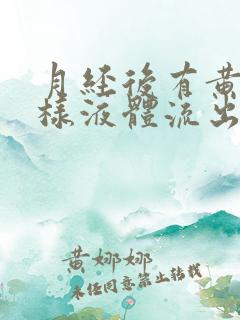 月經後有黃
樣液體流出
黃娜娜
未經同意禁止轉載